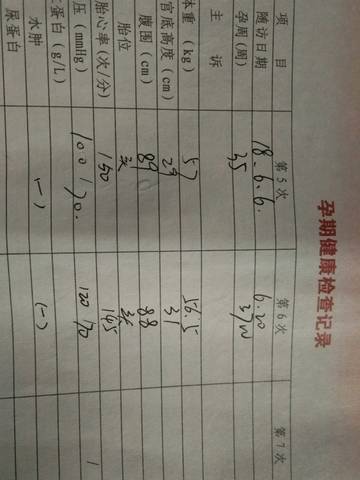 孕期健康检查记录
项 目 第5次 第6次 第7次
随访日期 18.6.6. 6.20
孕周(周) 35 37W
主 诉
体重(kg) 57 56.5
宫底高度(cm) 29 31
腹围(cm) 89 88
胎位 头 头
胎心率(次/分) 150 145
压(mmHg) 100/70. 120/70
蛋白(g/L)
水肿 (-) (-)
尿蛋白